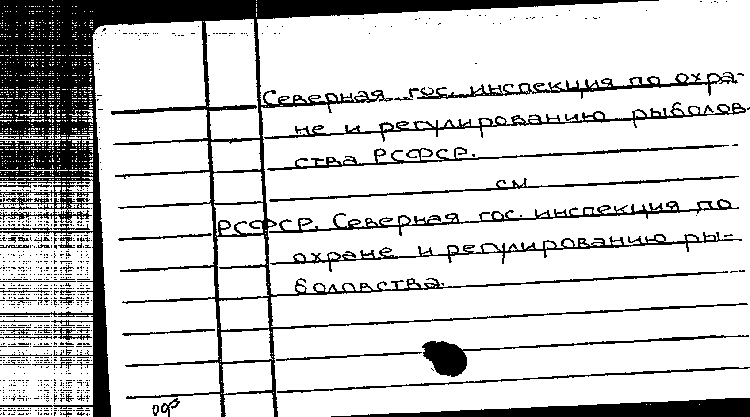 Северная гос. инспекция по охра-
не и регулированию рыболов
ства РСФСР.
см
РСФСР. Северная гос. инспекция по
охране и регулированию ры-
боловства.